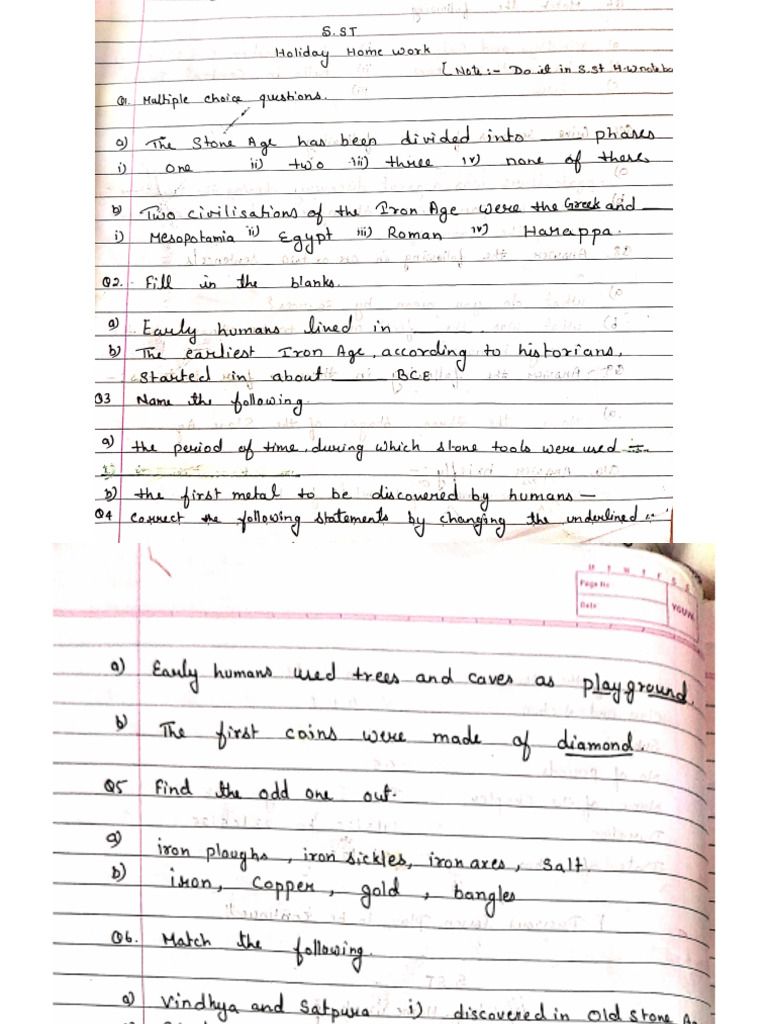 S.ST
Holiday Home work
[Note:- Do it in S.st H.W notebo
Q1. Multiple choice questions.
a) The Stone Age has been divided into ___ phases
i) one ii) two iii) three iv) none of these
b) Two civilisations of the Iron Age were the Greek and ___
i) Mesopotamia ii) Egypt iii) Roman iv) Harappa.
Q2. Fill in the blanks.
a) Early humans lived in ______.
b) The earliest Iron Age, according to historians,
started in about ____ BCE
Q3 Name the following.
a) the period of time, during which stone tools were used
b) the first metal to be discovered by humans —
Q4 Correct the following statements by changing the underlined
Page No
Date
YOUVA
a) Early humans used trees and caves as playground.
b) The first coins were made of diamond.
Q5 Find the odd one out.
a) iron ploughs, iron sickles, iron axes, salt.
b) iron, copper, gold, bangles
Q6. Match the following.
a) Vindhya and Satpura i) discovered in Old Stone A